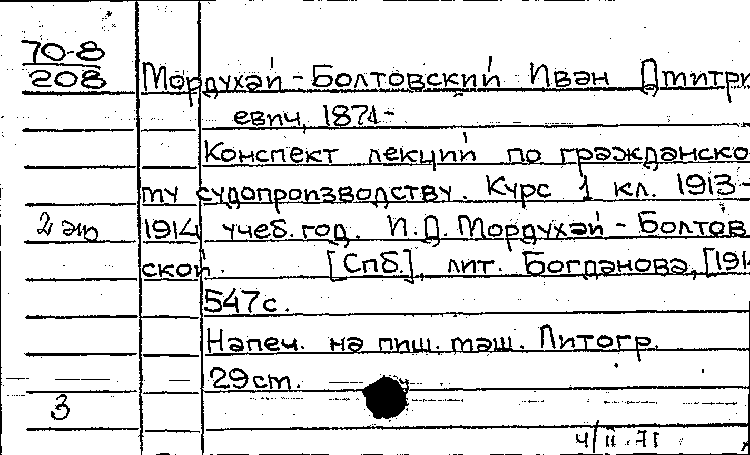 70-8
208
Мордухай-Болтовский Иван Дмитри
евич, 1874-
Конспект лекций по гражданско
му судопроизводству. Курс 1 кл. 1913-
2 эк 1914 учеб. год. И.Д. Мордухай-Болтов
ской. [Спб.], лит. Богданова, [191
547с.
Напеч. на пиш. маш. Литогр.
29см.
3
4/II.71